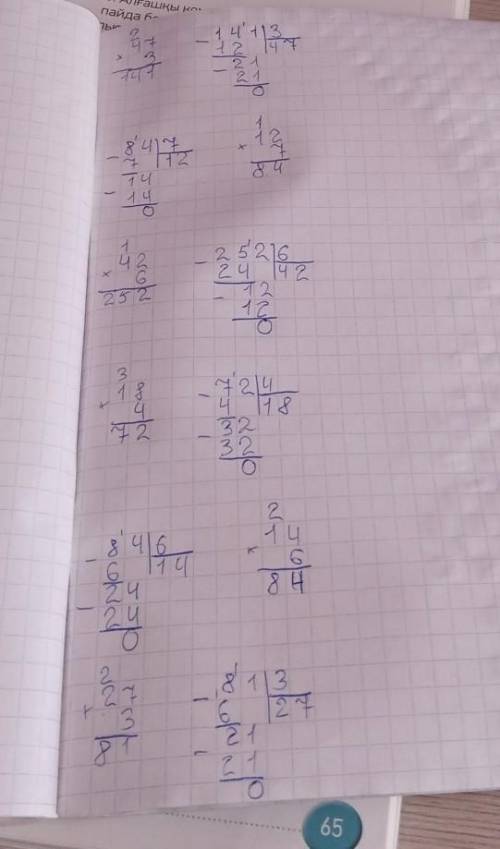 Алғашқы
пайда
2
47
× 3
141
- 141|3
12 47
- 21
21
0
- 84|7
7 12
14
- 14
0
1
12
× 7
84
1
42
× 6
252
- 252|6
24 42
- 12
12
0
3
18
× 4
72
- 72|4
4 18
- 32
32
0
- 84|6
6 14
24
- 24
0
2
14
× 6
84
2
27
× 3
81
- 81|3
6 27
- 21
21
0
65